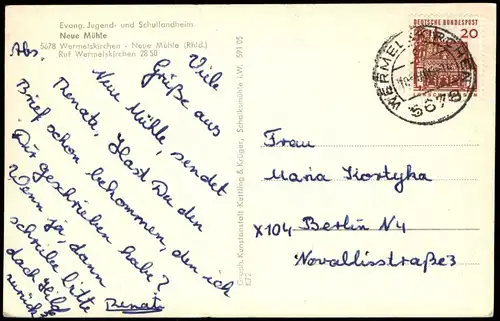 Evang. Jugend- und Schullandheim
Neue Mühle
5678 Wermelskirchen - Neue Mühle (Rhld.)
Ruf Wermelskirchen 28 50
Abs.
Viele
Grüße aus
Neue Mühle, sendet
Renate, Hast Du den
Brief schon bekommen, den ich
Dir geschrieben habe?
Wenn ja, dann
schreibe bitte
doch
zurück.
Renate
Graph. Kunstanstalt Kettling & Krüger, Schalksmühle i.W. 591 05
K72
DEUTSCHE BUNDESPOST
20
5678
Frau
Maria Kostyka
X104 Berlin N4
Novallisstraße 3